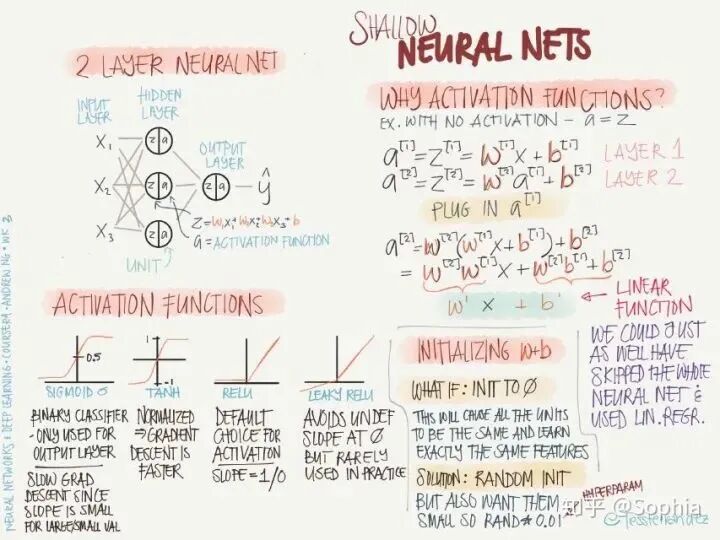 SHALLOW
NEURAL NETS
2 LAYER NEURAL NET
INPUT
LAYER
HIDDEN
LAYER
OUTPUT
LAYER
X1
X2
X3
z a
z a
z a
z a
ŷ
Z = W1X1 + W2X2 + W3X3 + b
a = ACTIVATION FUNCTION
UNIT
WHY ACTIVATION FUNCTIONS?
EX. WITH NO ACTIVATION - a = Z
a[1] = Z[1] = W[1]X + b[1] LAYER 1
a[2] = Z[2] = W[2]a[1] + b[2] LAYER 2
PLUG IN a[1]
a[2] = W[2](W[1]X + b[1]) + b[2]
= W[2]W[1]X + W[2]b[1] + b[2]
W' X + b'
LINEAR
FUNCTION
WE COULD JUST
AS WELL HAVE
SKIPPED THE WHOLE
NEURAL NET &
USED LIN. REGR.
ACTIVATION FUNCTIONS
0.5
SIGMOID σ
BINARY CLASSIFIER
- ONLY USED FOR
OUTPUT LAYER
SLOW GRAD
DESCENT SINCE
SLOPE IS SMALL
FOR LARGE/SMALL VAL
1
-1
TANH
NORMALIZED
⇒ GRADIENT
DESCENT IS
FASTER
RELU
DEFAULT
CHOICE FOR
ACTIVATION
SLOPE = 1/0
LEAKY RELU
AVOIDS UNDEF
SLOPE AT 0
BUT RARELY
USED IN PRACTICE
INITIALIZING W+b
WHAT IF: INIT TO 0
THIS WILL CAUSE ALL THE UNITS
TO BE THE SAME AND LEARN
EXACTLY THE SAME FEATURES
SOLUTION: RANDOM INIT
BUT ALSO WANT THEM
SMALL SO RAND * 0.01
HYPERPARAM
知乎 @Sophia
@jessfernandez
NEURAL NETWORKS & DEEP LEARNING • COURSERA • ANDREW NG • WK 3